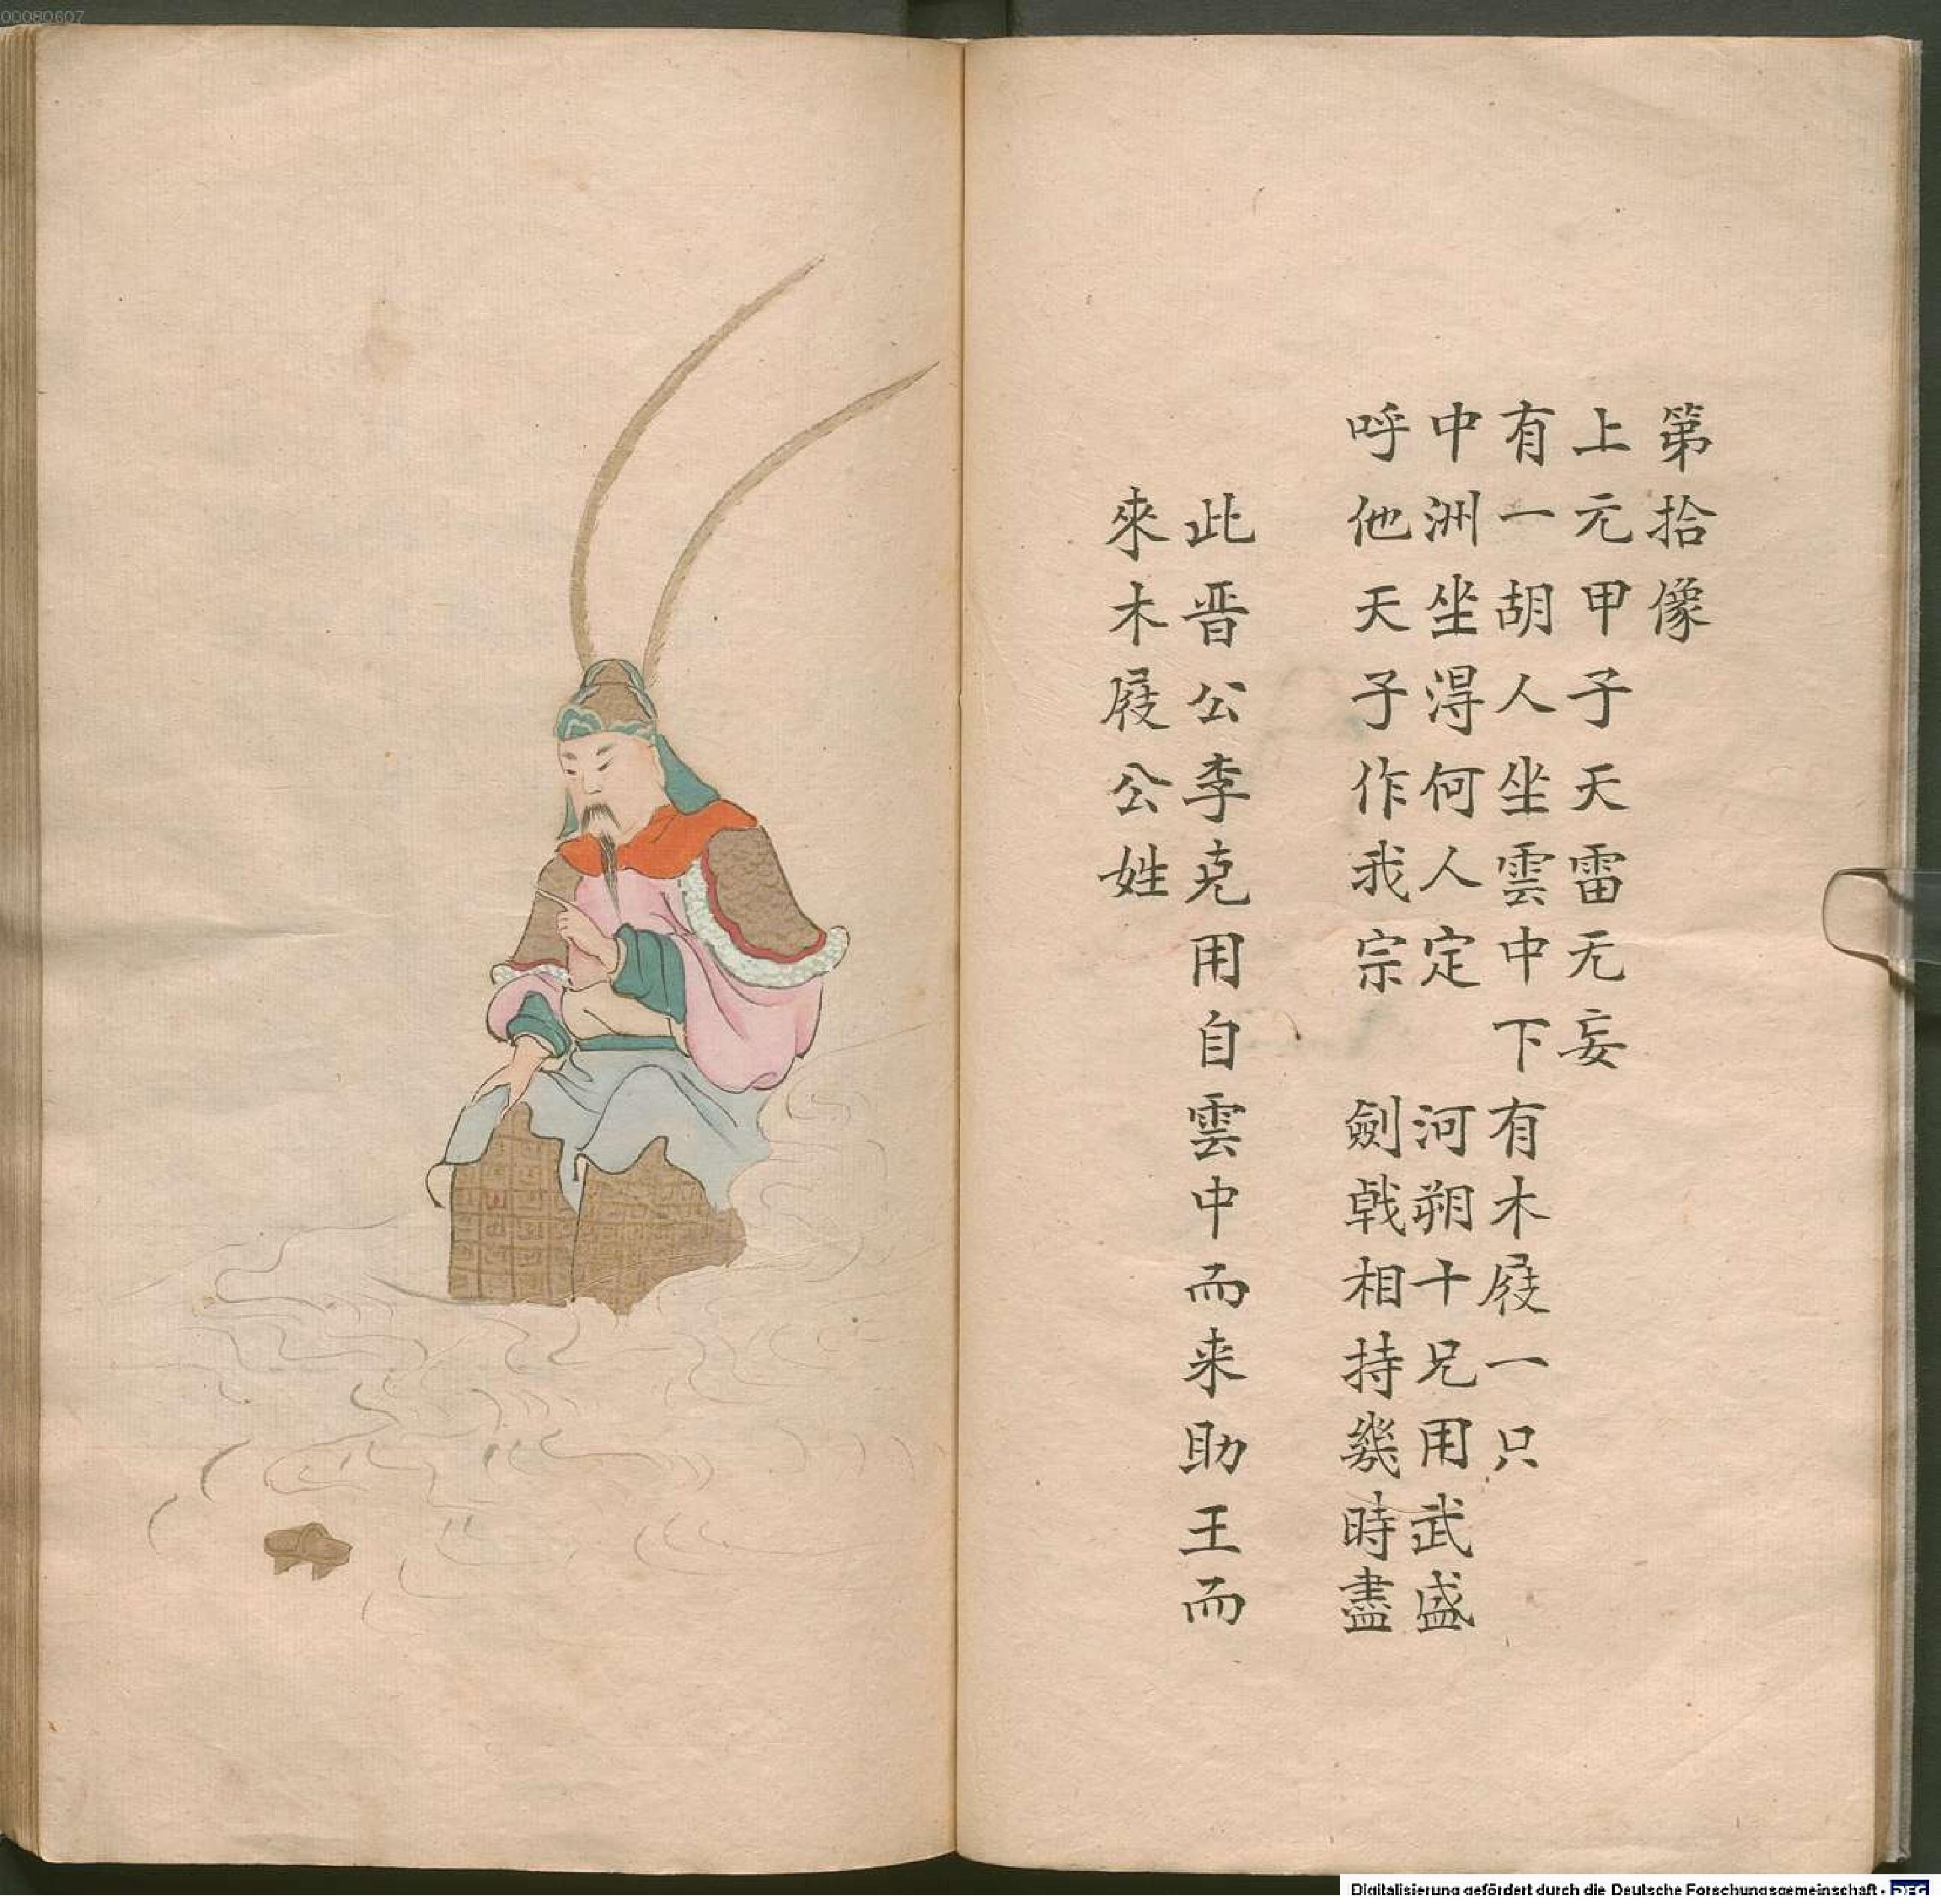 00080607
第拾像
上元甲子天雷无妄
有一胡人坐雲中下有木屐一只
中洲坐得何人定　河朔十兄用武盛
呼他天子作我宗　劍戟相持幾時盡
此晋公李克用自雲中而来助王而
來木屐公姓
Digitalisierung gefördert durch die Deutsche Forschungsgemeinschaft - DFG